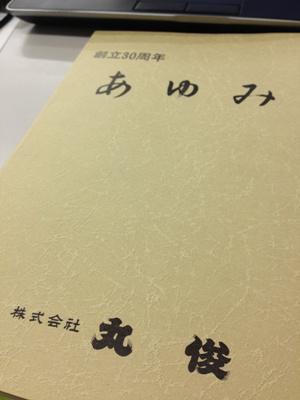 創立30周年
あゆみ
株式会社 丸俊